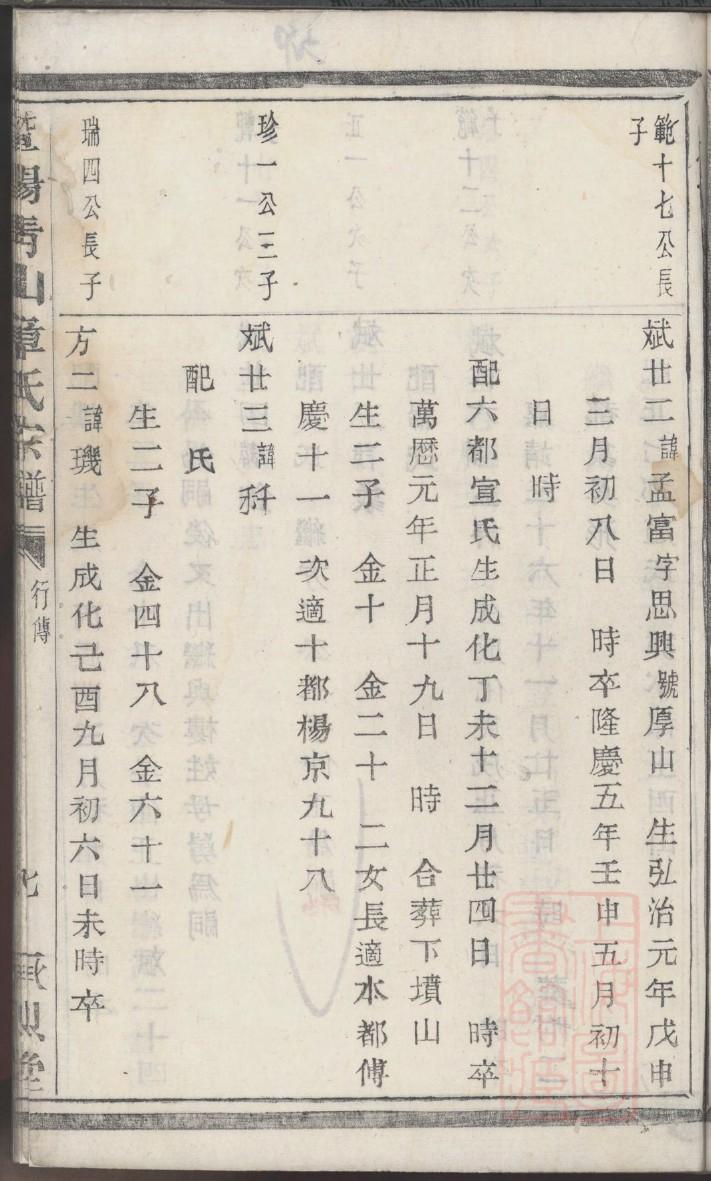 範十七公長
子
斌廿二諱孟富字思興號厚山　生弘治元年戊申
三月初八日　時卒隆慶五年壬申五月初十
日　時
配六都宣氏生成化丁未十二月廿四日　時卒
萬厯元年正月十九日　時　合葬下墳山
生二子　金十　金二十　二女長適本都傅
慶十一　次適十都楊京九十八
珍一公三子
斌廿三諱科
配　氏
生二子　金四十八　金六十一
瑞四公長子
方二諱璣　生成化己酉九月初六日未時卒
暨陽青山章氏宗譜
行傳